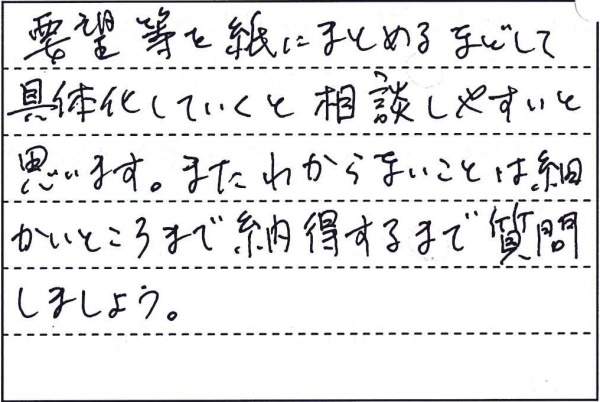 要望等を紙にまとめるなどして
具体化していくと相談しやすいと
思います。またわからないことは細
かいところまで納得するまで質問
しましょう。